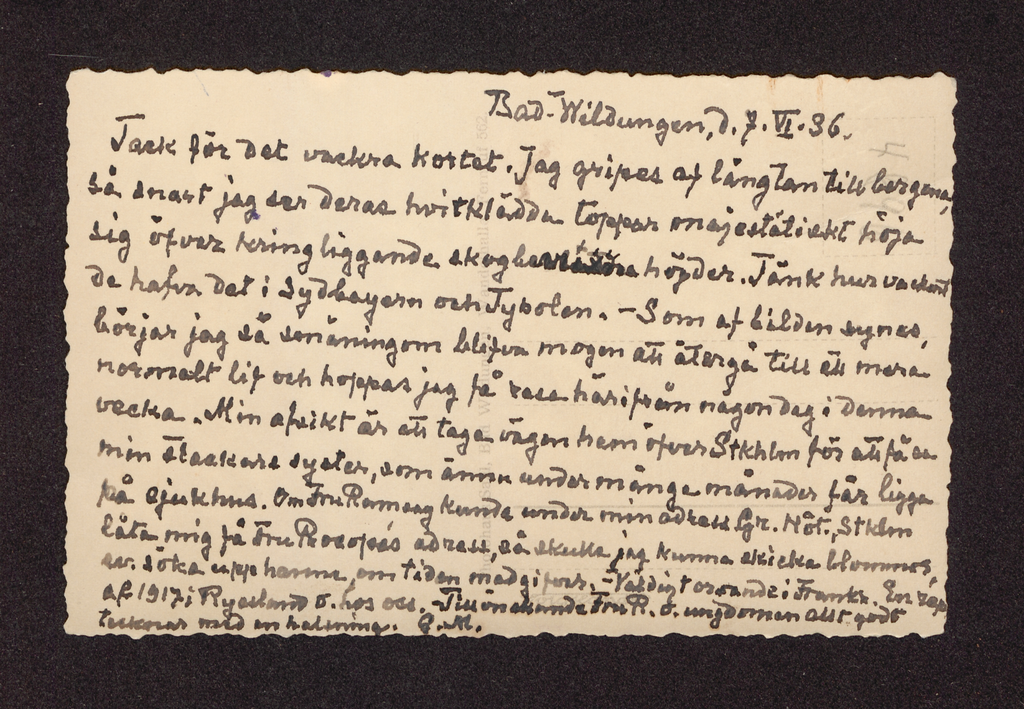 Bad-Wildungen, d. 7. VI. 36.
Tack för det vackra kortet. Jag gripes af längtan till bergena,
så snart jag ser deras hvitklädda toppar majestätiskt höja
sig öfver kringliggande höjder. Tänk hur vackert
de hafva det i Sydbayern och Tyrolen. – Som af bilden synes,
börjar jag så småningom blifva mogen att återgå till ett mera
normalt lif och hoppas jag få resa härifrån någon dag i denna
vecka. Min afsikt är att taga vägen hem öfver Stkhlm för att få se
min stackars syster, som ännu under många månader får ligga
på sjukhus. Om Fru Ramsay kunde under min adress Gr. Hôt., Stklm
låta mig få Fru Procopés adress, så skulle jag kunna skicka blommor,
ev. söka upp henne, om tiden medgifver. – oroande i Frankr. En rep.
af 1917 i Ryssland o. hos oss. – Tillönskande Fru R. o. ungdomen allt godt
tecknar med en hälsning. G. M.